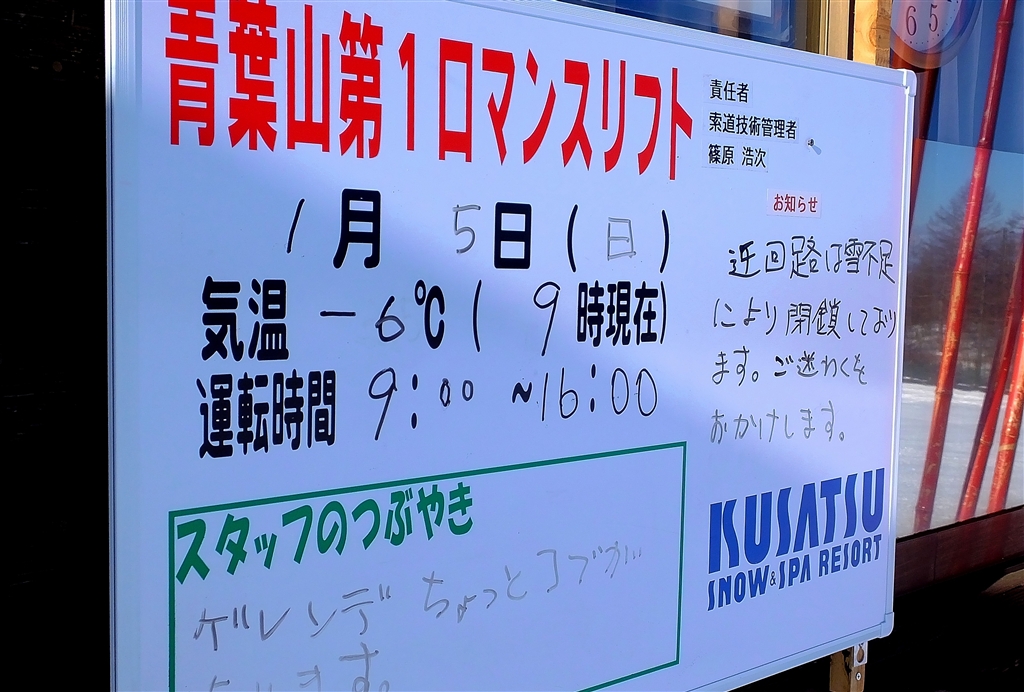 青葉山第1ロマンスリフト
1月 5日(日)
気温 -6℃( 9時現在)
運転時間 9:00 ~16:00
スタッフのつぶやき
ゲレンデ ちょっとコブが
あります。
責任者
索道技術管理者
篠原 浩次
お知らせ
迂回路は雪不足
により閉鎖しており
ます。ご迷わくを
おかけします。
KUSATSU
SNOW&SPA RESORT
6 5